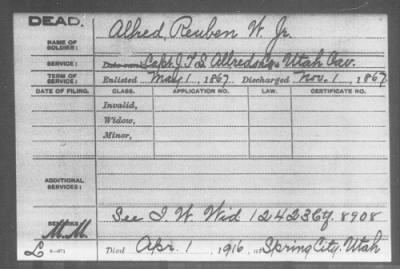 DEAD.
Allred, Reuben W. Jr.
NAME OF SOLDIER:
SERVICE: Capt. J. T. S. Allreds Co. Utah Cav.
TERM OF SERVICE: Enlisted May 1, 1867. Discharged Nov. 1, 1867
DATE OF FILING. CLASS. APPLICATION NO. LAW. CERTIFICATE NO.
Invalid,
Widow,
Minor,
ADDITIONAL SERVICES:
See I. W. Wid 1242369. 8908
REMARKS:
M.M.
Died Apr. 1, 1916, at Spring City, Utah